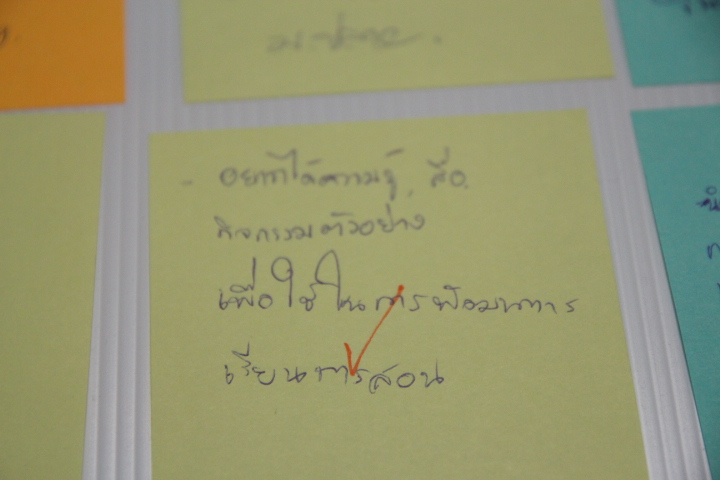 - อยากได้ความรู้, สื่อ,
กิจกรรมตัวอย่าง
เพื่อใช้ในการพัฒนาการ
เรียนการสอน